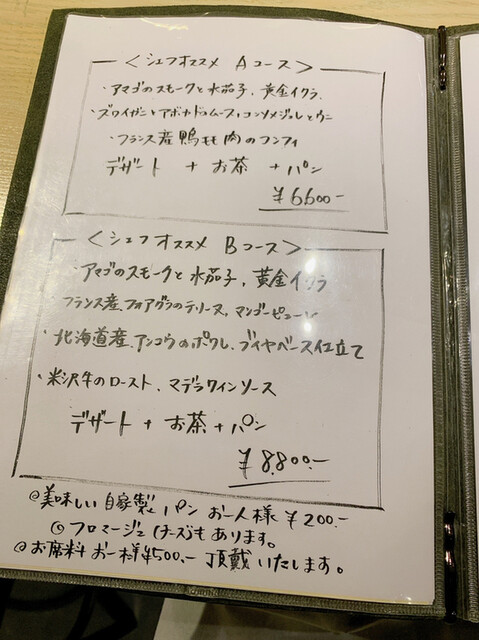 〈シェフオススメ Aコース〉
・アマゴのスモークと水茄子、黄金イクラ
・ズワイガニとアボカドのムース、コンソメジュレとウニ
・フランス産鴨モモ肉のコンフィ
デザート + お茶 + パン
¥6600-
〈シェフオススメ Bコース〉
・アマゴのスモークと水茄子、黄金イクラ
フランス産、フォアグラのテリーヌ、マンゴーピューレ
・北海道産、アンコウのポワレ、ブイヤベース仕立て
・米沢牛のロースト、マデラワインソース
デザート + お茶 + パン
¥8,800-
◎美味しい自家製パン お一人様 ¥200-
◎フロマージュ(チーズ)もあります。
◎お席料お一様¥500- 頂戴いたします。